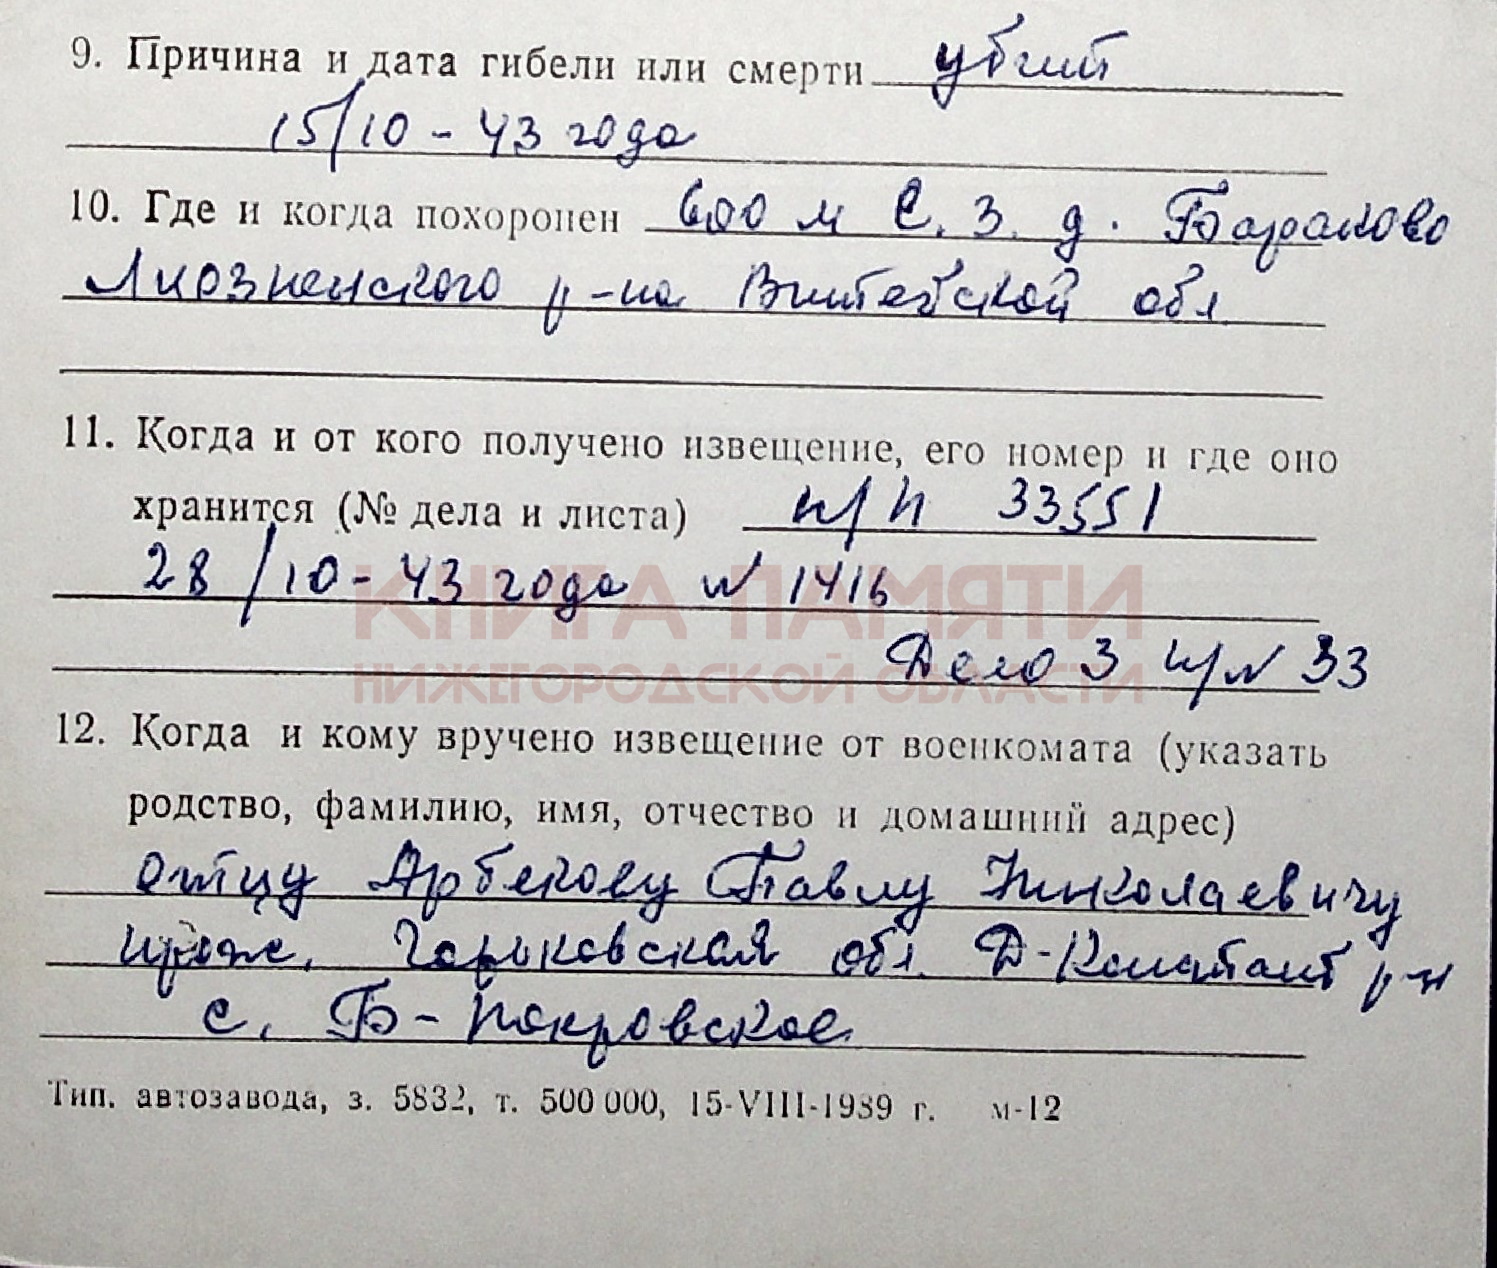 9. Причина и дата гибели или смерти убит
15/10 - 43 года
10. Где и когда похоронен 600 м С. З. д. Бараново
Лиозненского р-на Витебской обл
11. Когда и от кого получено извещение, его номер и где оно
хранится (№ дела и листа) п/п 33551
28/10 - 43 года № 1416
КНИГА ПАМЯТИ
Дело 3 н/№ 33
НИЖЕГОРОДСКОЙ ОБЛАСТИ
12. Когда и кому вручено извещение от военкомата (указать
родство, фамилию, имя, отчество и домашний адрес)
отцу Арбекову Павлу Николаевичу
прож. Горьковская обл. Д-Констант р-н
с. Б-Покровское
Тип. автозавода, з. 5832, т. 500 000, 15-VIII-1989 г. м-12